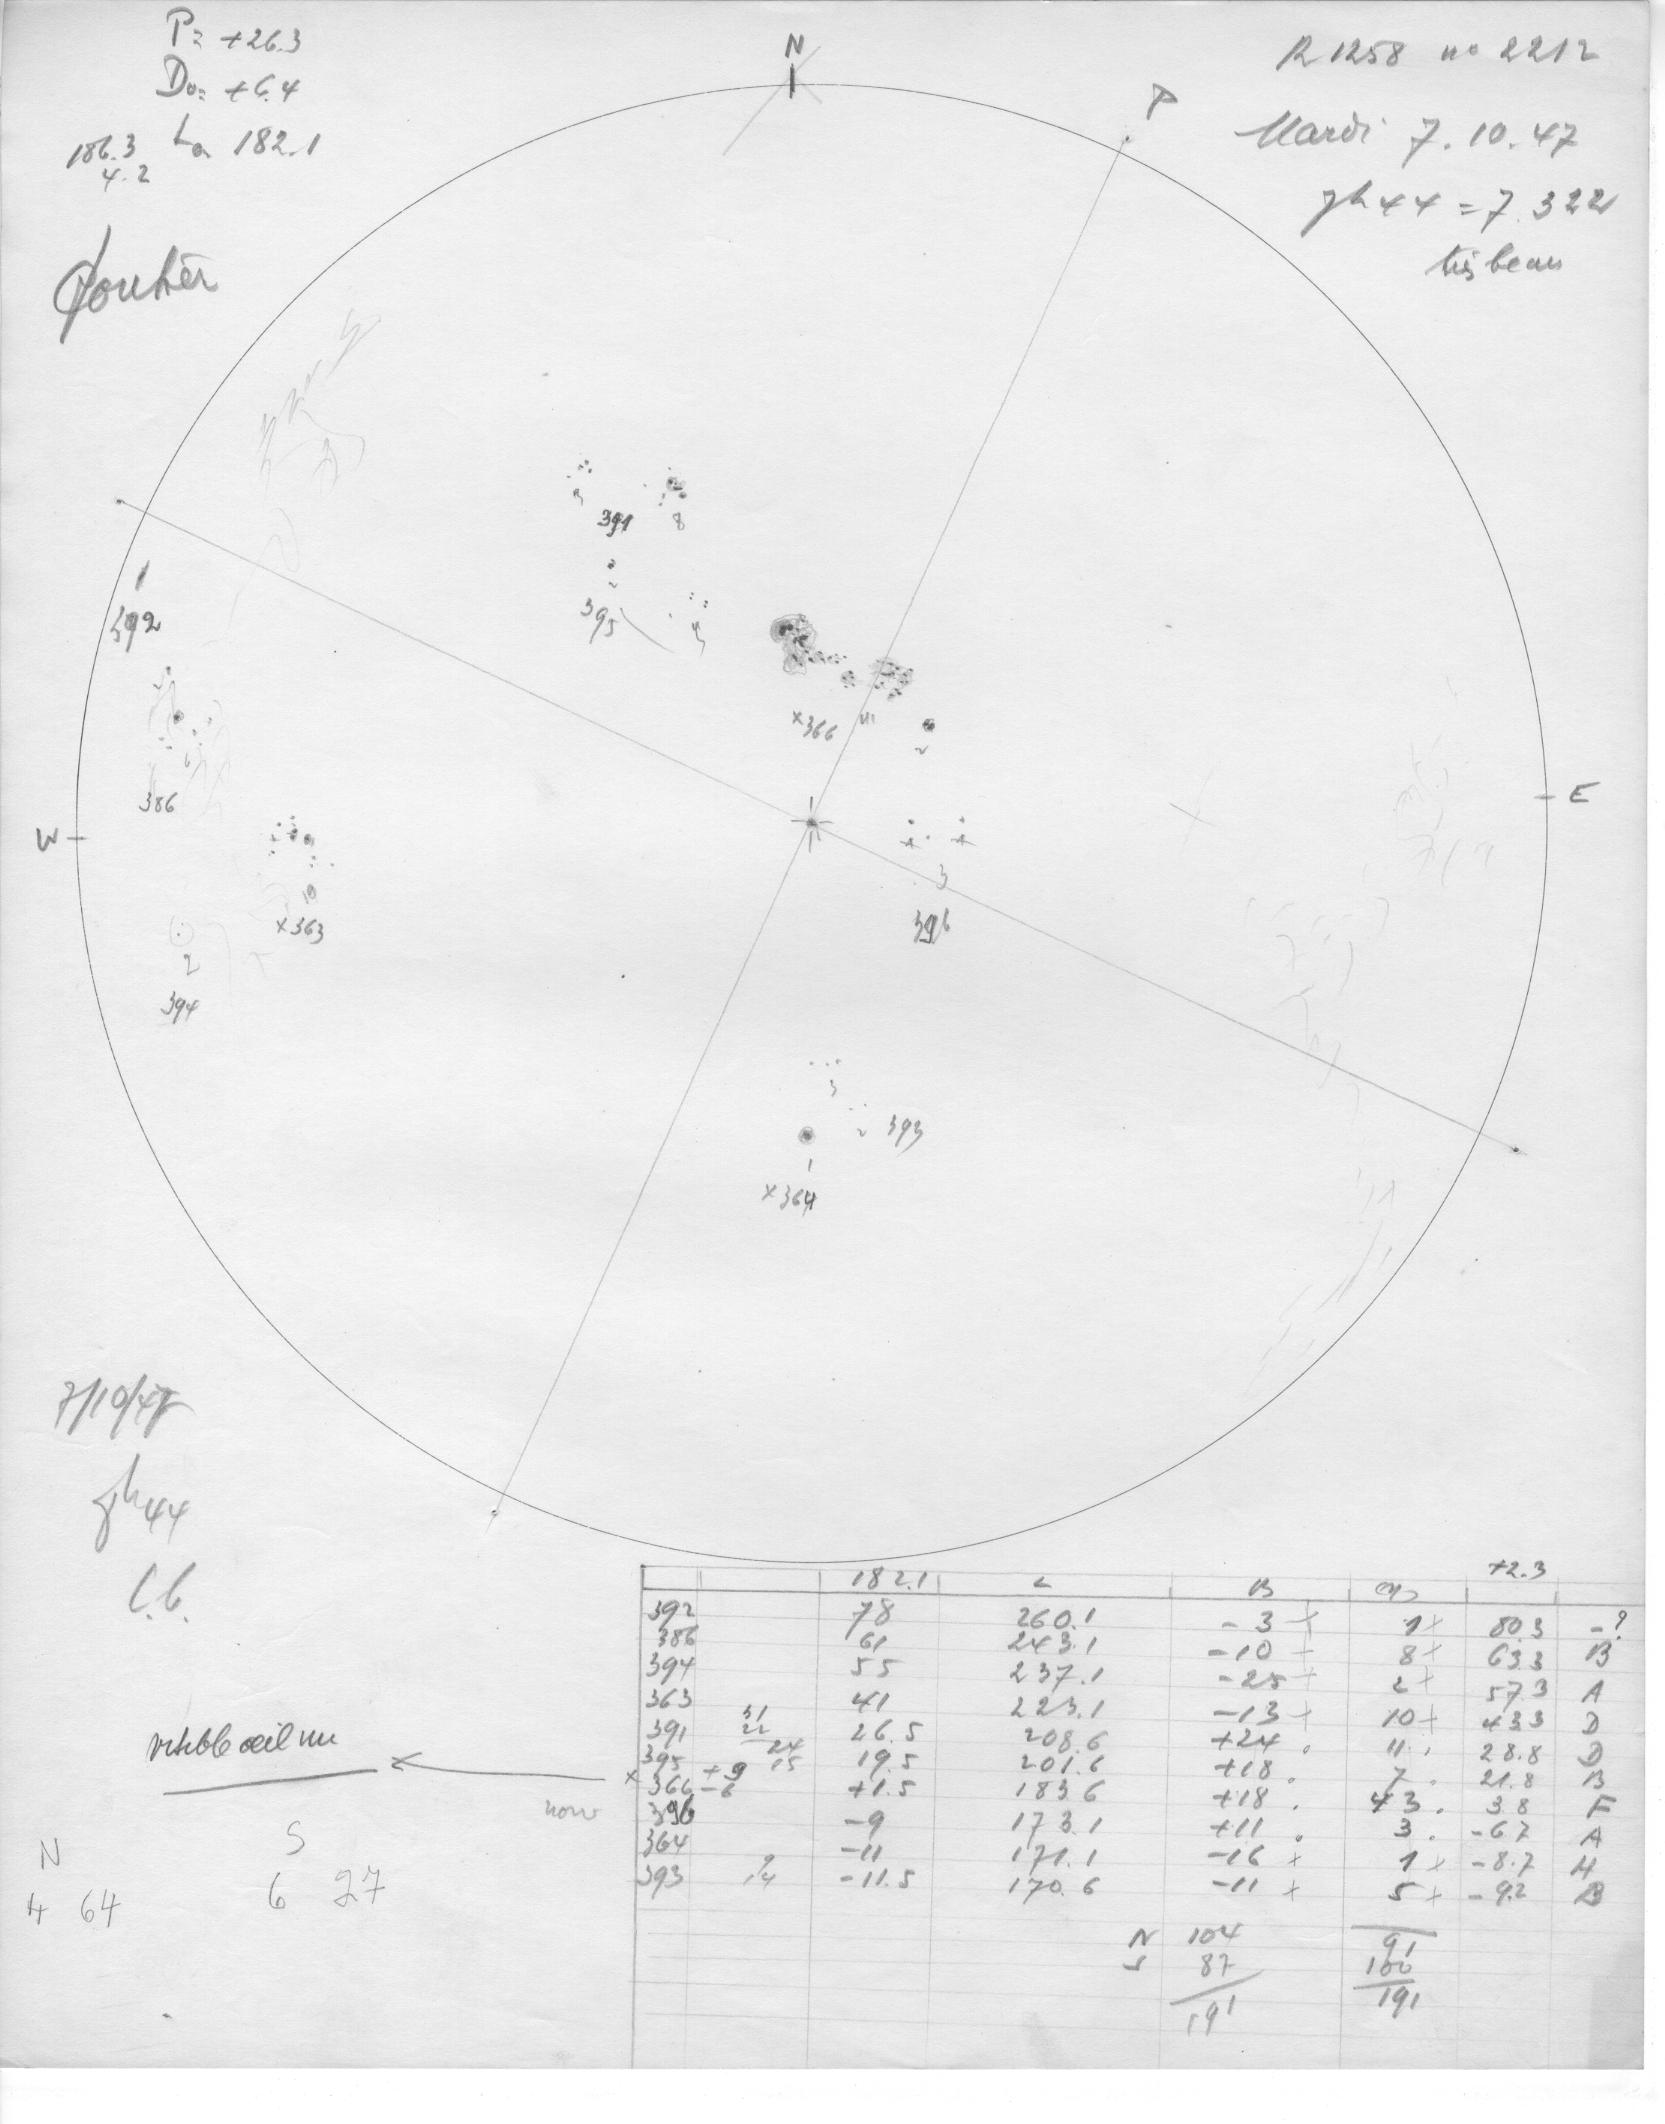 P = +26.3
Do = +6.4
Lo 182.1
186.3
4.2
N
P
R 1258 no 2212
Mardi 7.10.47
7h44 = 7.322
très beau
391
8
392
395
x366
386
W
E
10
x363
2
394
3
396
3
393
1
x364
7/10/47
7h44
visible oeil nu
N
S
4 64
6 27
+2.3
182.1 L B
392 78 260.1 -3 + 1+ 80.3 -?
386 61 243.1 -10 - 8+ 63.3 B
394 55 237.1 -25 + 2+ 57.3 A
363 41 223.1 -13 + 10+ 43.3 D
391 26.5 208.6 +24 . 11 . 28.8 D
395 24 15 19.5 201.6 +18 . 7 . 21.8 B
x 366 +9 -6 +1.5 183.6 +18 . 43 . 3.8 F
396 -9 173.1 +11 . 3 . -6.7 A
364 -11 171.1 -16 + 1+ -8.7 H
393 9 14 -11.5 170.6 -11 + 5+ -9.2 B
N 104 91
S 87 100
191 191